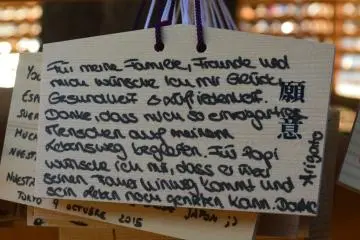 Für meine Familie, Freunde und
mich wünsche ich mir Glück,
Gesundheit & Zufriedenheit.
Danke, dass mich so einzigartige
Menschen auf meinem
Lebensweg begleiten. Für Papi
wünsche ich mir, dass er über
seinen Trauer hinweg kommt und
sein Leben noch genießen kann. Danke
Arigato
願意
YO
ESP
SUER
MUCH
NUEST
NUESTA
TOKYO 9 OCTUBRE 2015
JAPON ;)